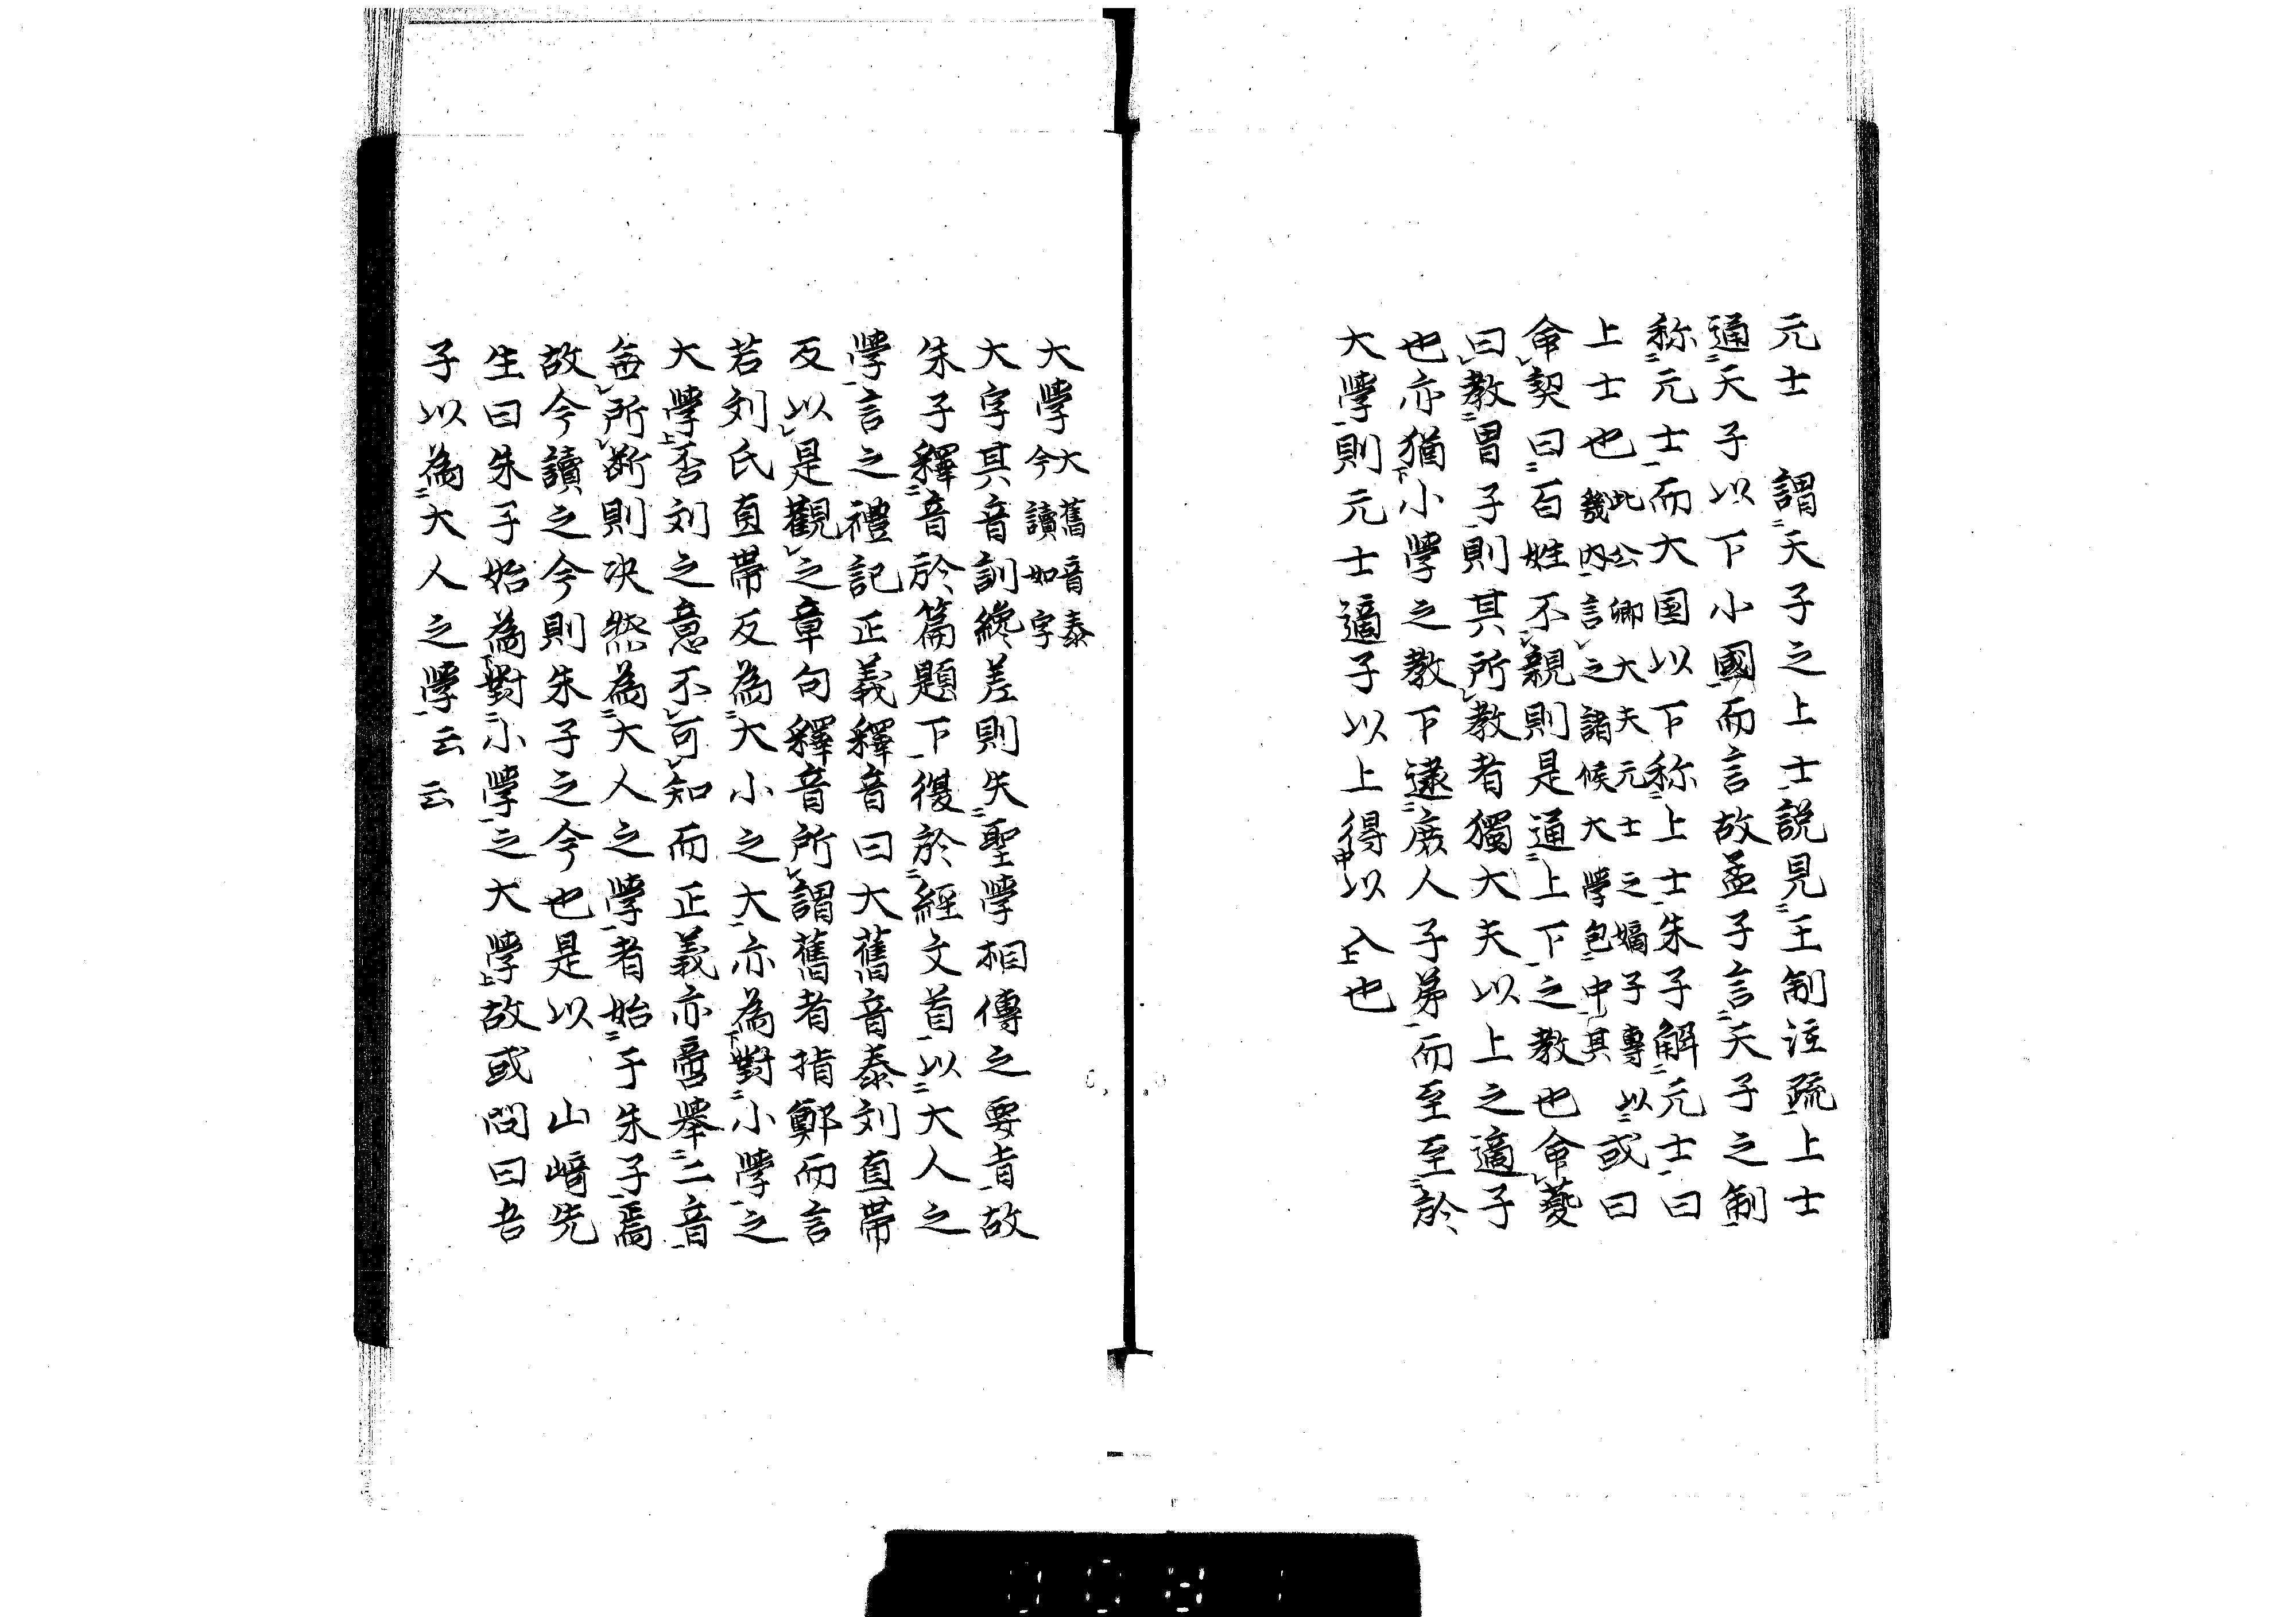 元士　謂天子之上士説見王制注疏上士
通天子以下小國而言故孟子言天子之制
称元士而大国以下称上士朱子解元士曰
上士也此公卿大夫元士之嫡子專以或曰
畿内言之諸候大學包中其
命契曰百姓不親則是通上下之教也命夔
曰教胄子則其所教者獨大夫以上之適子
也亦猶小學之教下逮庶人子弟而至至於
大學則元士適子以上得以入也
大學大舊音泰
今讀如字
大字其音訓纔差則失聖學相傳之要旨故
朱子釋音於篇題下復於經文首以大人之
學言之禮記正義釋音曰大舊音泰刘直帯
反以是觀之章句釋音所謂舊者指鄭而言
若刘氏直帯反為大小之大亦為對小學之
大學否刘之意不可知而正義亦啻舉二音
無所断則决然為大人之學者始于朱子焉
故今讀之今則朱子之今也是以　山﨑先
生曰朱子始為對小學之大學故或問曰吾
子以為大人之學云云